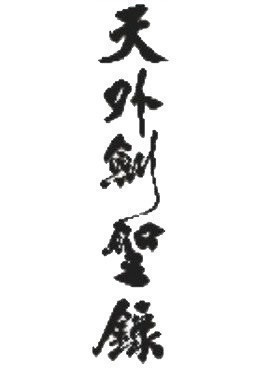 天外劍聖錄